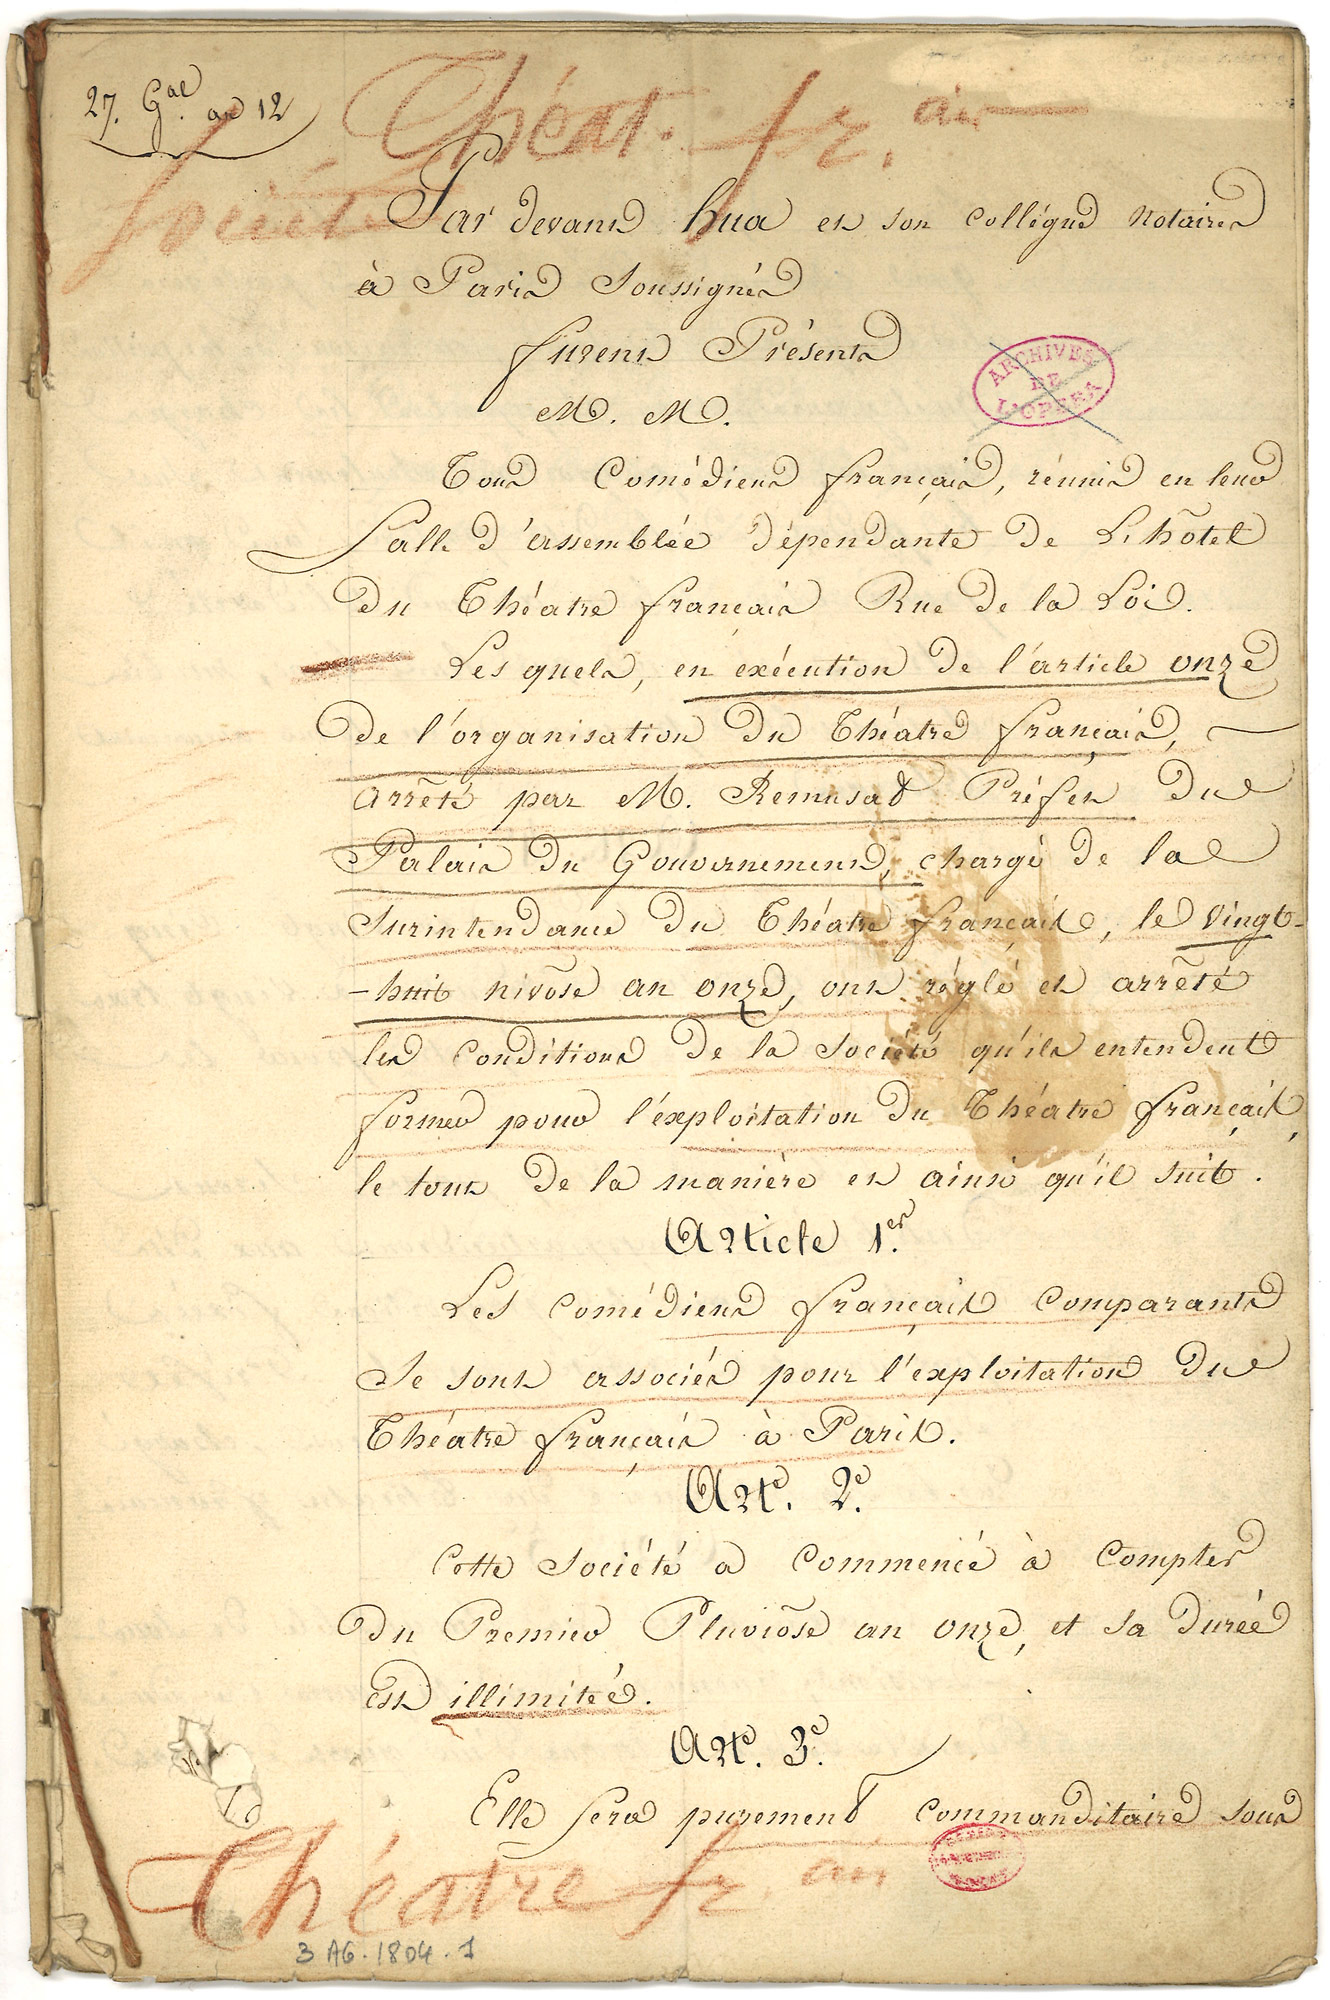 27. G.al an 12
Théat. fr. an
Société
Par devant hua et son collégue notaires
à Paris Soussignés
furent Présents
M. M.
ARCHIVES
DE
L'OPERA
Tous Comédiens français, réunis en leur
Salle d'assemblée dépendante de L'hôtel
du Théatre français Rue de la Loi.
Les quels, en exécution de l'article onze
de l'organisation du Théatre français,
arrêté par M. Remusat Préfet du
Palais du Gouvernement, chargé de la
surintendance du Théatre français, le vingt-
-huit nivôse an onze, ont réglé et arrêté
les conditions de la société qu'ils entendent
former pour l'exploitation du Théatre français,
le tout de la manière et ainsi qu'il suit.
Article 1.er
Les comédiens français comparants
Se sont associés pour l'exploitation du
Théatre français à Paris.
Art. 2.e
Cette société a commencé à compter
du Premier Pluviôse an onze, et sa durée
est illimitée.
Art. 3.e
Elle sera purement commanditaire sous
Théatre fr. an
3 AG. 1804. 1